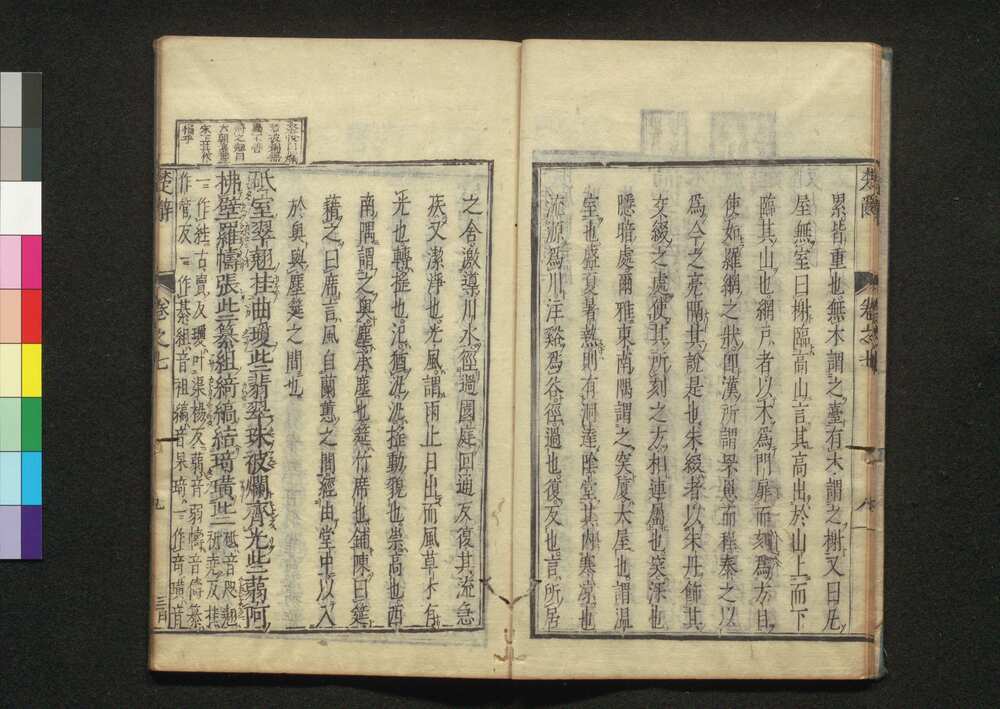 楚辭 卷之七
累皆重也無木謂之臺有木謂之榭又曰凡
屋無室曰榭臨高山言其高出於山上而下
臨其山也網戶者以木爲門扉而刻爲方目
使如羅網之狀卽漢所謂罘罳而程泰之以
爲今之亮隔其說是也朱綴者以朱丹飾其
交綴之處使其所刻之方相連屬也突深也
隱暗處爾雅東南隅謂之突厦大屋也謂温
室也盛夏暑熱則有洞達陰堂其內寒凉也
流源爲川注谿爲谷徑過也復反也言所居
之舍激導川水徑過園庭回通反復其流急
疾又潔淨也光風謂雨止日出而風草木有
光也轉搖也氾猶汎汎搖動貌也崇高也西
南隅謂之奧塵承塵也筵竹席也鋪陳曰筵
藉之曰席言風自蘭蕙之間經由堂中以入
於奧與塵筵之間也
砥室翠翹挂曲瓊些翡翠珠被爛齊光些蒻阿
拂壁羅幬張些纂組綺縞結琦璜些砥音抵翹祈堯反挂
一作絓古賣反瓊叶渠揚反蒻音弱幬音儔纂
作管反一作綦組音祖縞音杲琦一作奇璜音
楚辭 卷之七 九